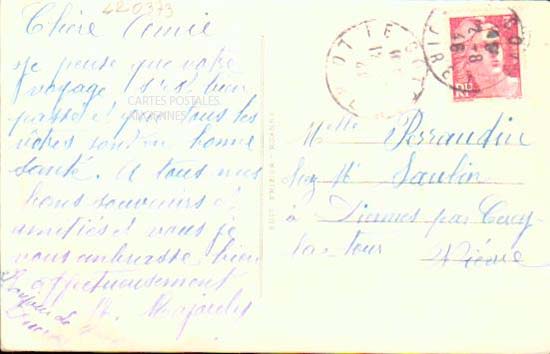 420373
Chère Amie
Je pense que votre
voyage s'est bien
passé et que tous les
vôtres sont en bonne
santé. A tous mes
bons souvenirs et
amitiés et vous je
vous embrasse bien
affectueusement
M.
CARTES POSTALES
ANCIENNES
Melle Perraudin
Chez Mr Saulin
à Diennes par Cercy-
la-tour Nièvre
RF